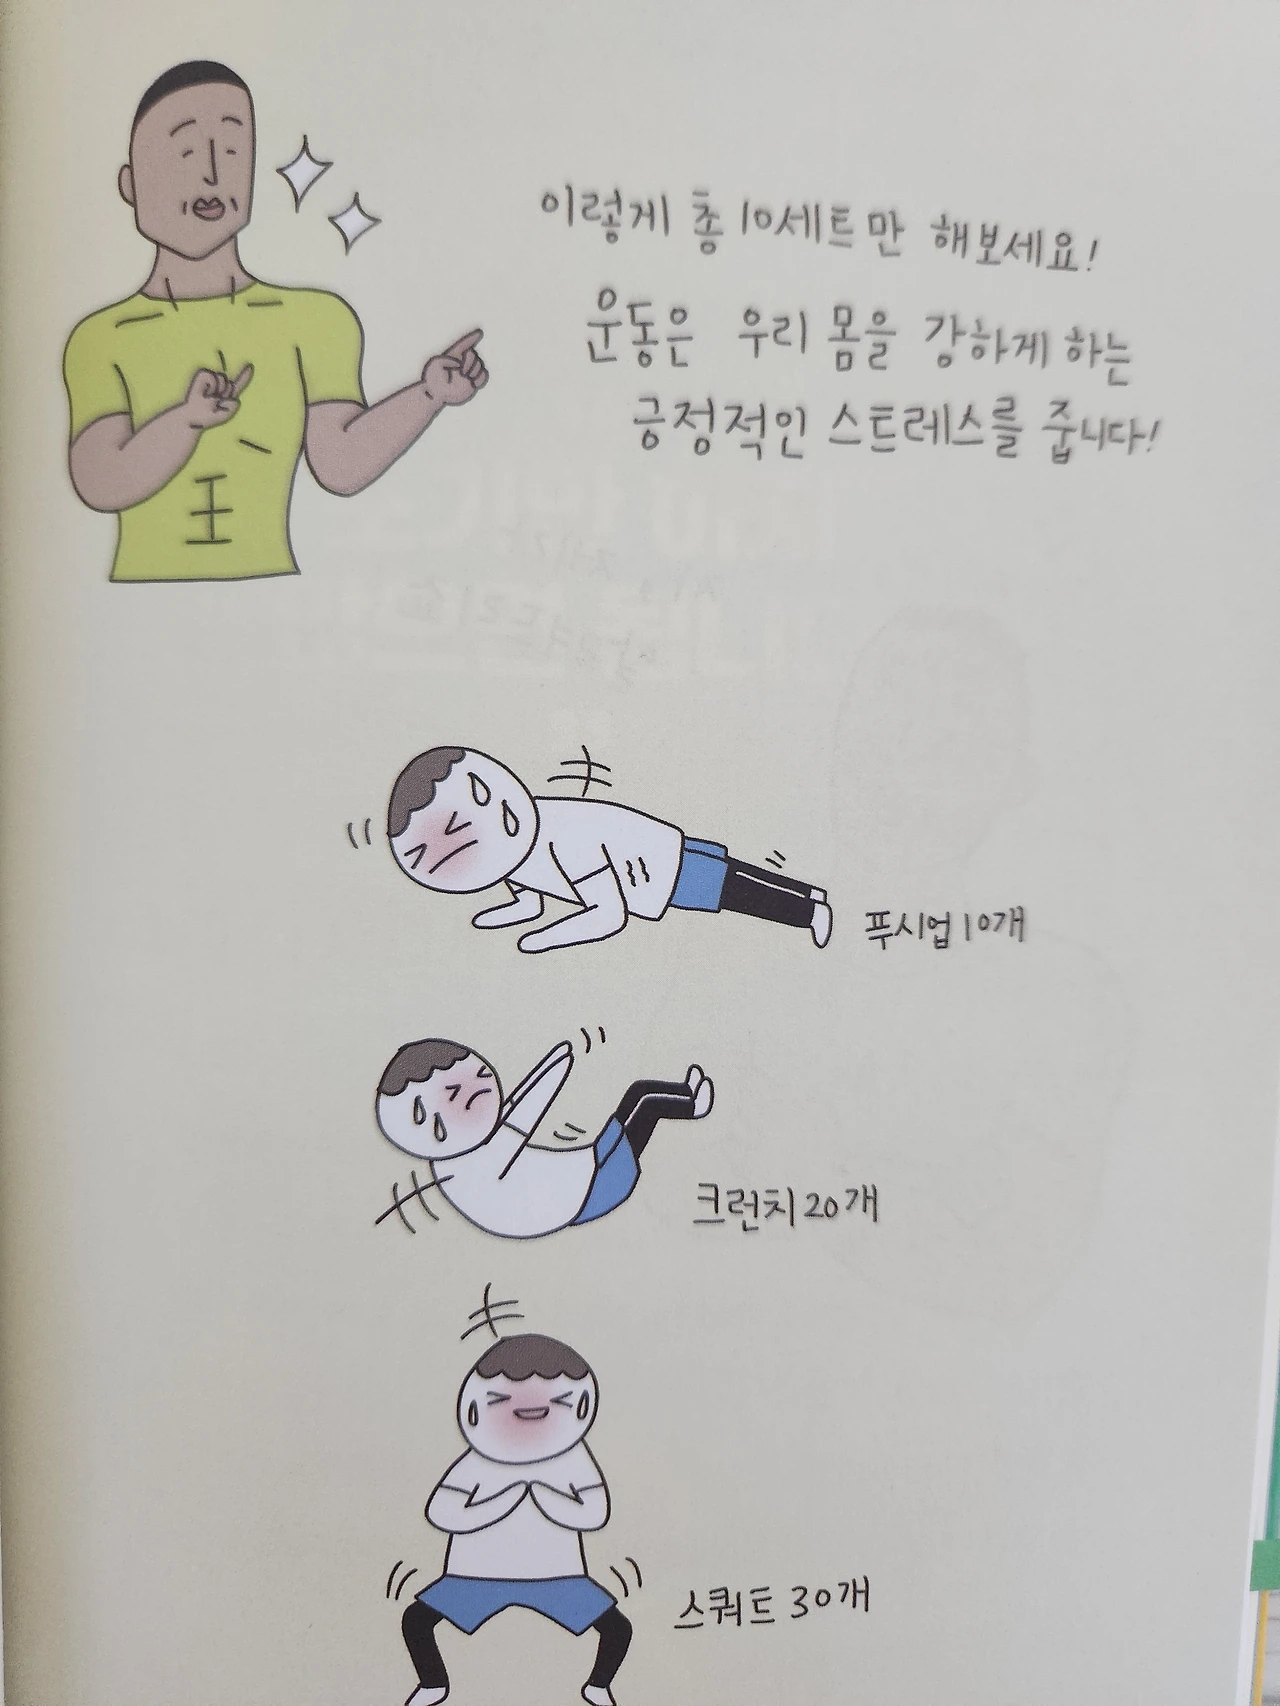 이렇게 총 10세트만 해보세요!
운동은 우리 몸을 강하게 하는
긍정적인 스트레스를 줍니다!
王
푸시업 10개
크런치 20개
스쿼트 30개